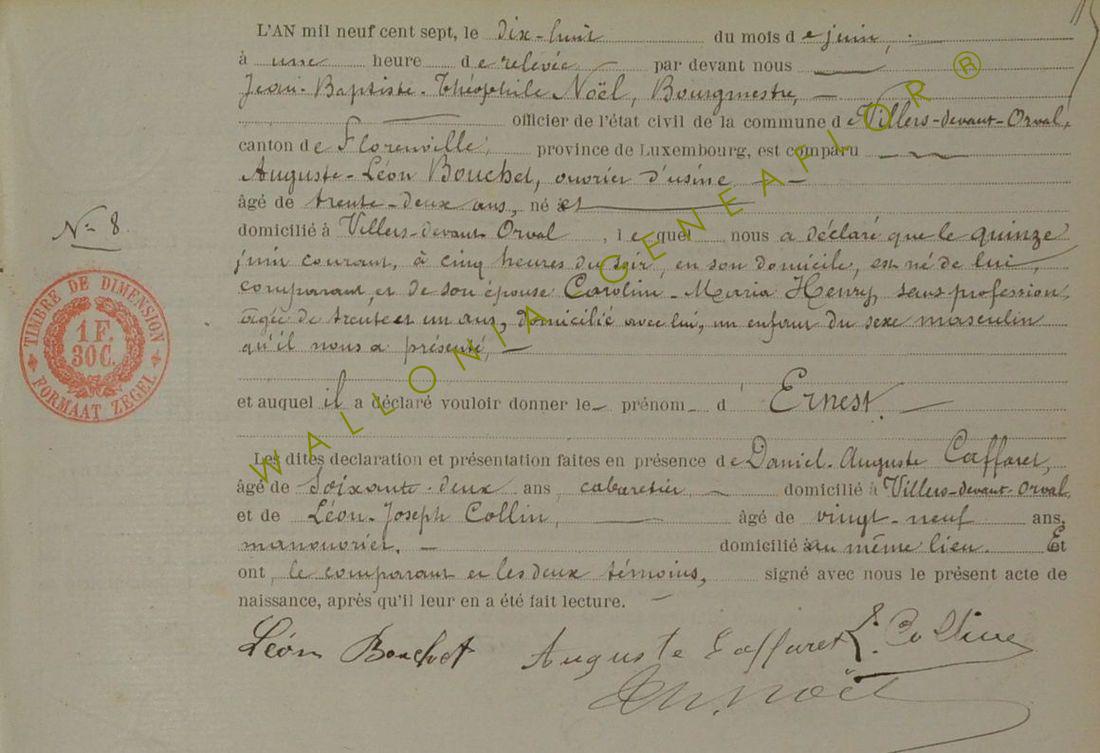 L'AN mil neuf cent sept, le dix-huit du mois de juin,
à une heure de relevée par devant nous
Jean-Baptiste-Théophile Noël, Bourgmestre,
officier de l'état civil de la commune de Villers-devant-Orval,
canton de Florenville, province de Luxembourg, est comparu
Auguste-Léon Bouchet, ouvrier d'usine
âgé de trente-deux ans, né et
N° 8
domicilié à Villers-devant Orval, lequel nous a déclaré que le quinze
juin courant, à cinq heures du soir, en son domicile, est né de lui,
comparant, et de son épouse Carolin-Maria Henry, sans profession,
âgée de trente et un ans, domicilié avec lui, un enfant du sexe masculin
qu'il nous a présenté,
TIMBRE DE DIMENSION
1F.
30C.
FORMAAT ZEGEL
et auquel il a déclaré vouloir donner le prénom d'Ernest.
Les dites declaration et présentation faites en présence de Daniel-Auguste Caffaret,
âgé de soixante-deux ans, cabaretier, domicilié à Villers-devant-Orval
et de Léon-Joseph Collin, âgé de vingt-neuf ans,
manouvrier. domicilié au même lieu. Et
ont, le comparant et les deux témoins, signé avec nous le présent acte de
naissance, après qu'il leur en a été fait lecture.
Léon Bouchet Auguste Caffaret L. Colline
Th. Noël
WALLONIA GENEAFLOR ®